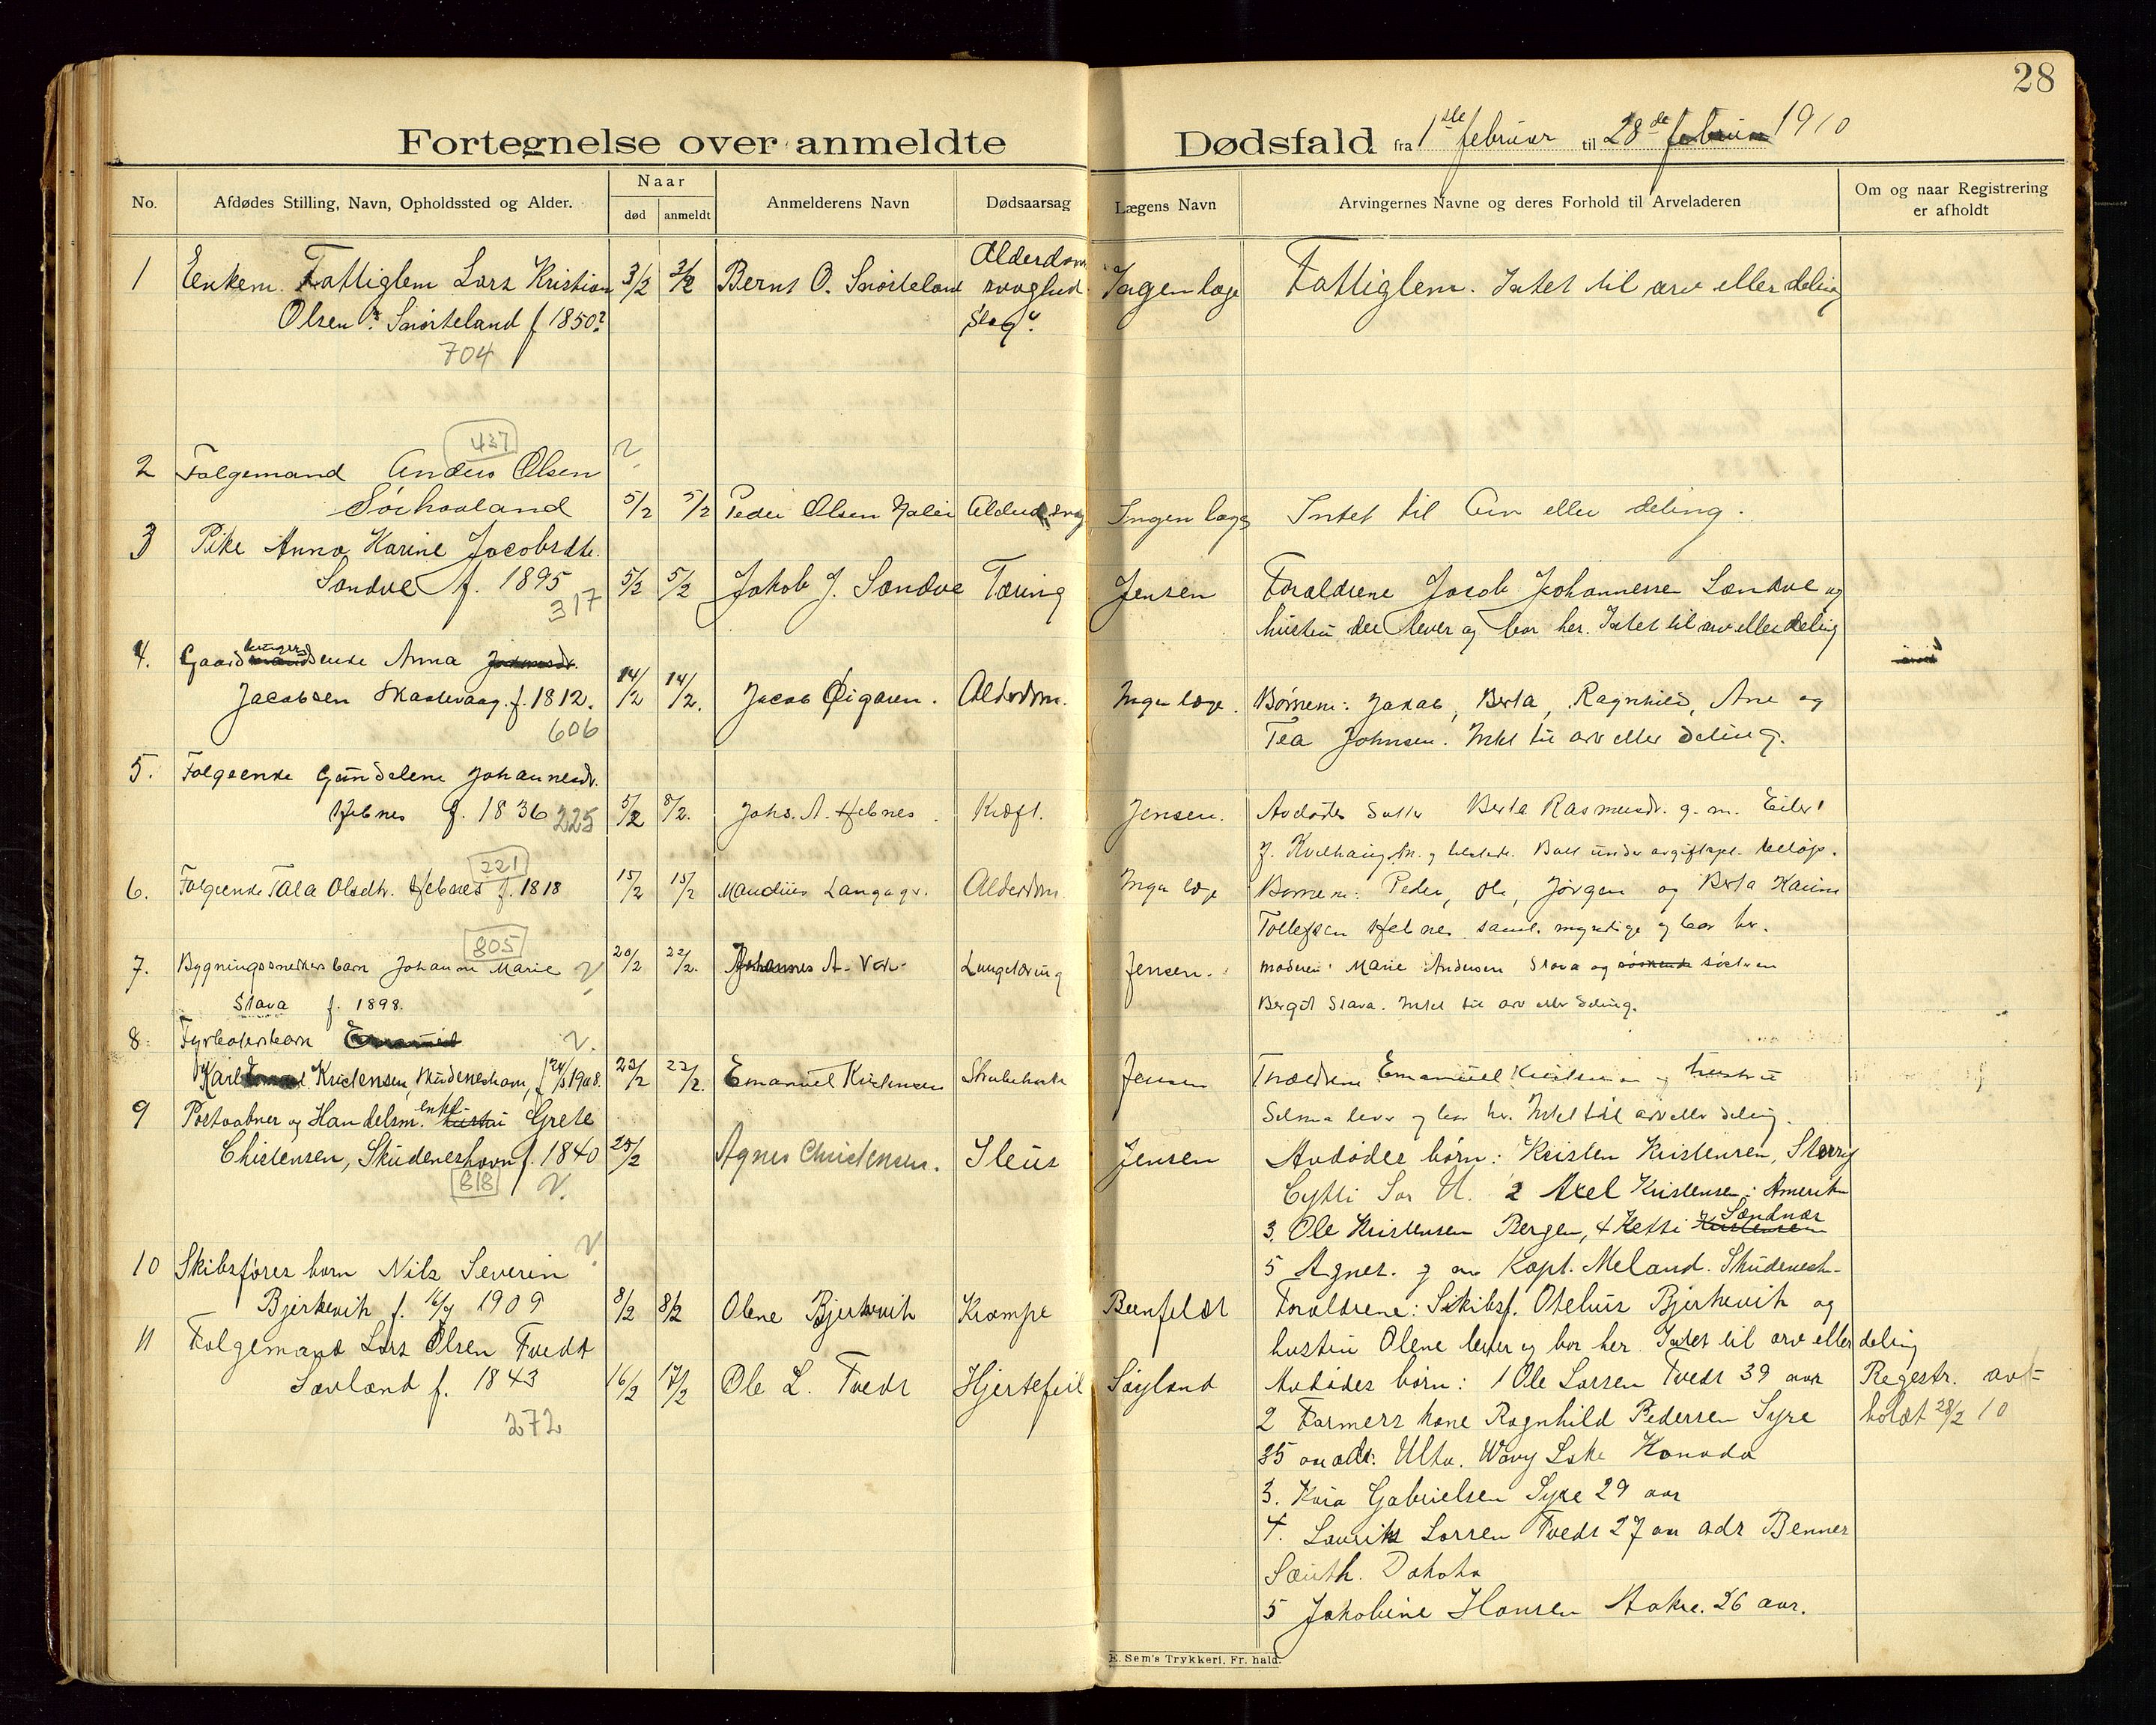 28
Fortegnelse over anmeldte Dødsfald fra 1ste februar til 28de februar 1910
No.
Afdødes Stilling, Navn, Opholdssted og Alder.
Naar
død
anmeldt
Anmelderens Navn
Dødsaarsag
Lægens Navn
Arvingernes Navne og deres Forhold til Arveladeren
Om og naar Registrering
er afholdt
1 Enkem. Fattiglem Lars Kristian 3/2 3/2 Bernt O. Snørteland Alderdom Ingen læge Fattiglem. Intet til arv eller deling
Olsen Snørteland f 1850?
slag
704
437
2 Folgemand Anders Olsen
Sørhaaland 5/2 5/2 Peder Olsen Ingen læge Intet til Arv eller deling.
3 Pike Anna Karine Jacobsdtr.
Sandve f. 1895 5/2 5/2 Jakob J. Sandve Tæring Jensen Foraldrene Jacob Johannessen Sandve og
317
hustru der lever og bor her. Intet til arv eller deling
4. Gaardbrugerenke Anna
Jacobsen Skaatevaag. f. 1812. 14/2 14/2. Jacob Øigaren. Alderdom. Ingen læge. Børnene: Jakob, Berta, Ragnhild, Ane og
606
Tea Johnsen. Intet til arv eller deling.
5. Folgeenke Gundelene Johannesdr.
Hebnes f. 1836 225 5/2 8/2. Johs. A. Hebnes. Kræft. Jensen. Avdødes Berta Rasmusdr. g. m. Eilert
under avgiftspl. beløp.
221
6. Folgeenke Tala Olsdtr. Hebnes f. 1818 15/2 15/2 Alderdom Ingen læge Børnene: Peder, Ole, Jørgen og Berta Karine
Tollefsen Hebnes saml. myndige og bor her.
805
7. Bygningssnekker barn Johanne Marie 20/2 22/2. Johannes A. Lungetæring Jensen. moderen Marie Andersen Stava og søskende søsteren
Stava f. 1898.
Bergit Stava. Intet til arv eller deling.
8. Fyrbøterbarn
Karl Kristensen, Skudeneshavn, 1908. 22/2 22/2. Emanuel Kristensen Strubehoste Jensen Foreldrene Emanuel Kristensen og hustru
Selma lever og bor her. Intet til arv eller deling.
9 Postaabner og Handelsm. enke hustru Grete
Christensen, Skudeneshavn f. 1840 25/2 Agnes Christensen. Ileus Jensen Avdødes børn: Kristen Kristensen,
818
2 Axel Kristensen: Amerika
3. Ole Kristensen Bergen, 4 Ketti Kristensen Sandnæs
5 Agnes. g m Kapt. Meland. Skudenesh-
10 Skibsfører barn Nils Severin
Bjerkevik f. 1909 8/2 8/2 Olene Bjerkevik Krampe Foraldrene: Skibsf. Otelius Bjerkevik og
hustru Olene lever og bor her. Intet til arv eller deling
11 Folgemand Lars Olsen Tvedt
Sævland f. 1843 16/2 17/2 Ole L. Tvedt Hjertefeil Søyland Avdødes børn: 1 Ole Larsen Tvedt 39 aar Regestr. avholdt 28/2 10
272
2 Farmers kone Ragnhild Pedersen Syre
35 aar adr. Ulta. Wavy Lake Kanada
3. Gabrielsen Syre 29 aar
4. Laurits Larsen Tvedt 27 aar adr Benner
South. Dakota
5 Jakobine Hansen Aakre. 26 aar.
E. Sem's Trykkeri, Fr. hald.